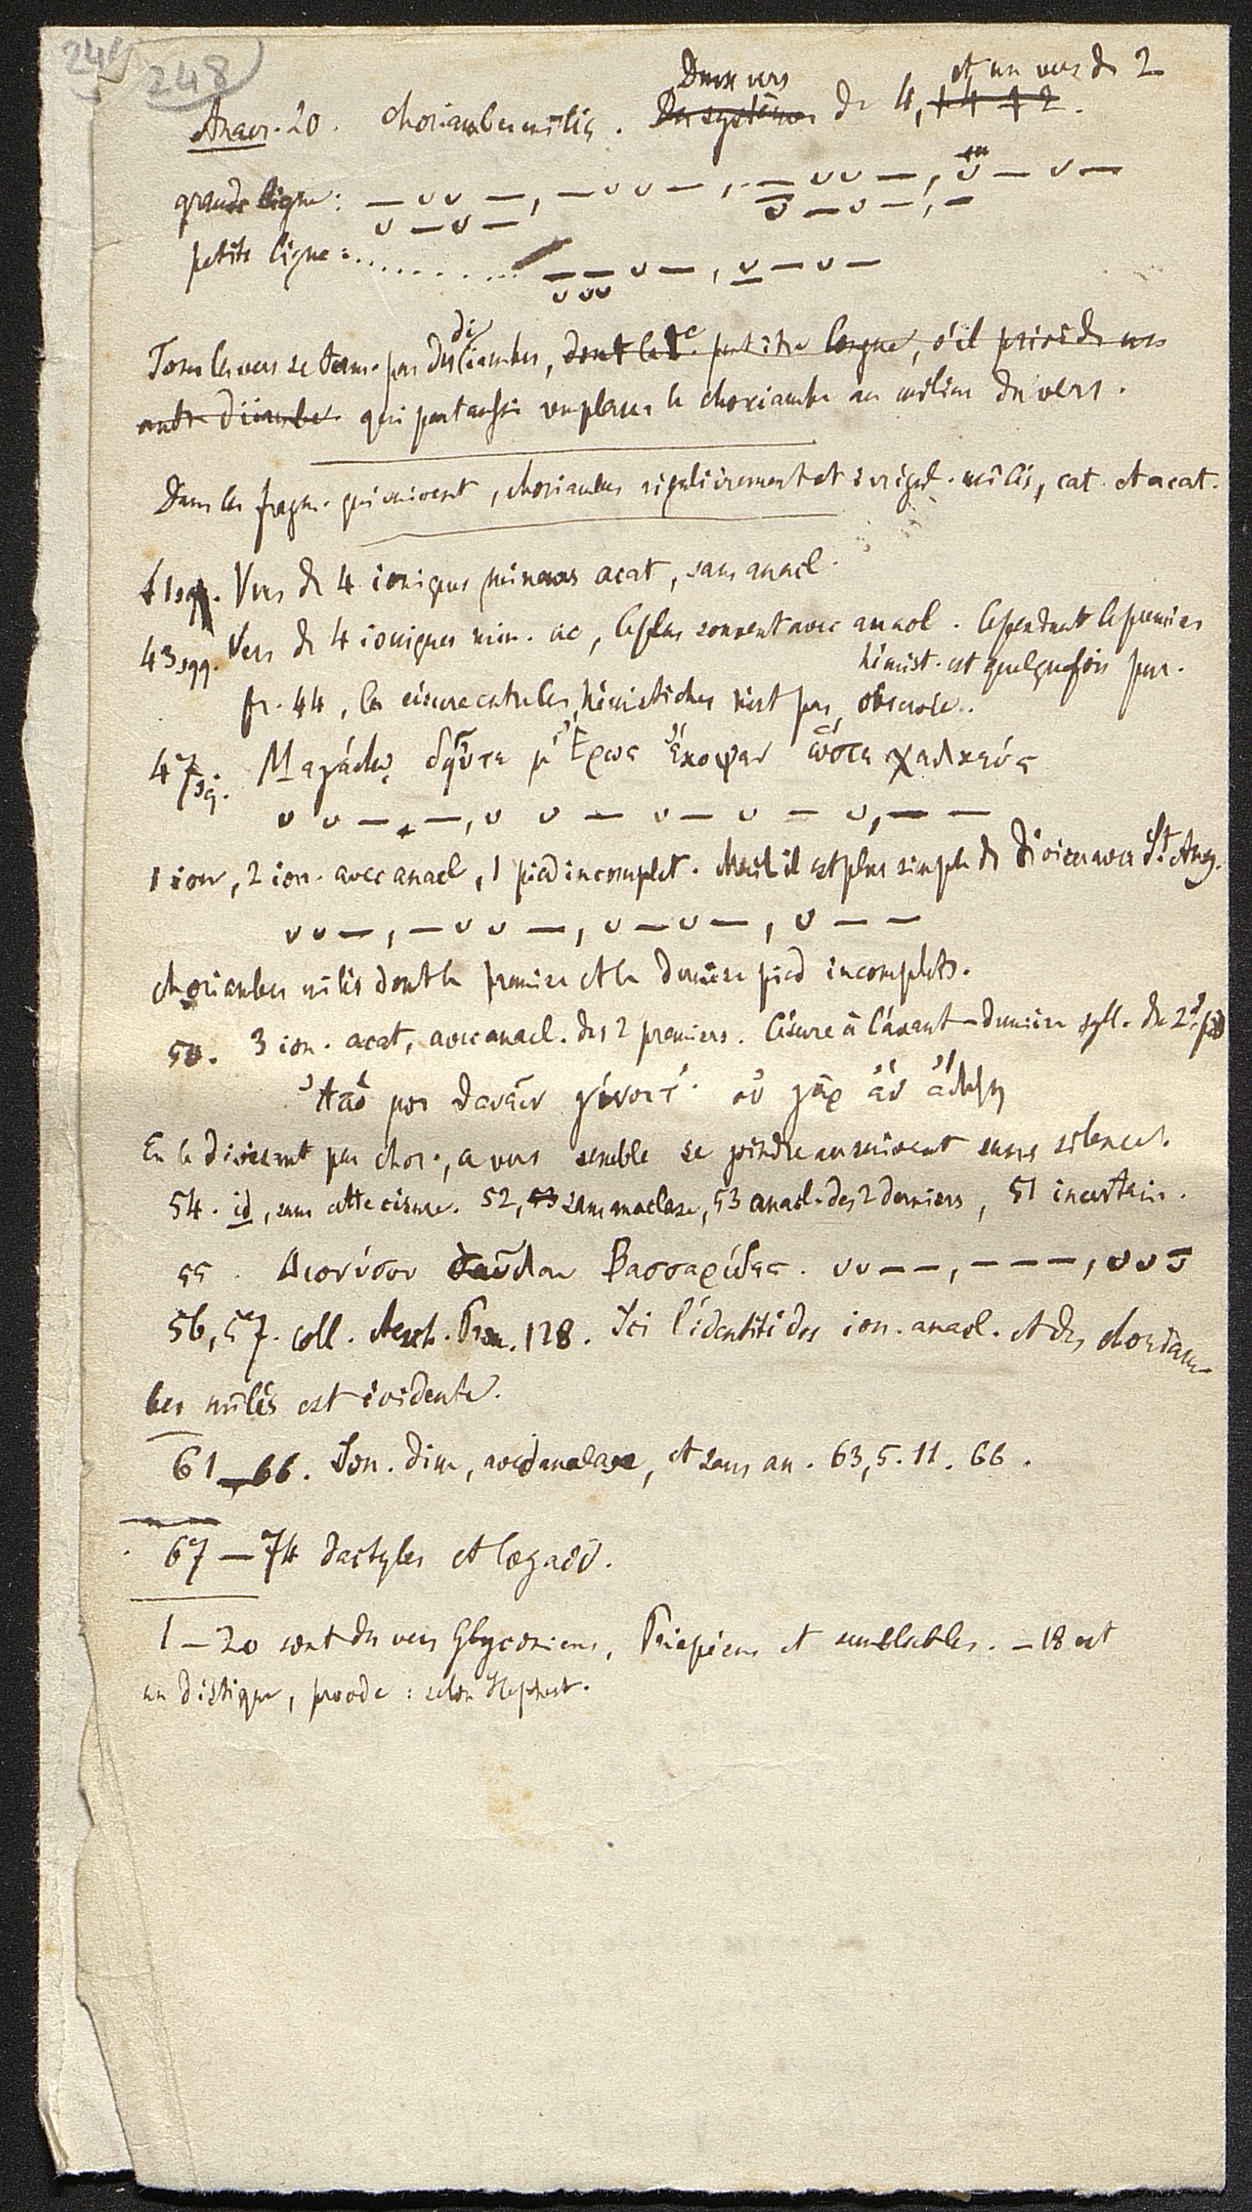 248
Anacr. 20. choriambes mêlés. Deux vers de 4, et un vers de 2
grande ligne : — ∪ ∪ —, — ∪ ∪ —, — ∪ ∪ —, ∪ — ∪ —
∪ — ∪ — ∪ — ∪ —, —
petite ligne : .......... — — ∪ —, ∪ — ∪ —
∪ ∪∪
Tous les vers se term. par des diiambes, dont la 1e peut être longue, s'il précède un
autre diiambe qui peut aussi remplacer le choriambe au milieu du vers.
Dans les fragm. qui suivent, choriambes régulièrement et irrégul. mêlés, cat. et acat.
41 sq. Vers de 4 ioniques mineurs acat, sans anacl.
43 sqq. Vers de 4 ioniques min. ac, le plus souvent avec anacl. Cependant le premier
hémist. est quelquefois pur.
fr. 44, la césure entre les hémistiches n'est pas observée.
47 sq. Μεγάλῳ δηὖτέ μ' Ἔρως ἔκοψεν ὥστε χαλκεύς
∪ ∪ — —, ∪ ∪ — ∪ — ∪ — ∪, — —
1 ion, 2 ion. avec anacl, 1 pied incomplet. Mais il est plus simple de diviser avec St. Aug.
∪ ∪ —, — ∪ ∪ —, ∪ — ∪ —, ∪ — —
choriambes mêlés dont le premier et le dernier pied incomplets.
50. 3 ion. acat, avec anacl. des 2 premiers. Césure à l'avant-dernière syll. du 2d pied
Ἀπό μοι θανεῖν γένοιτ'· οὐ γὰρ ἂν ἄλλη
En le divisant par chor., ce vers semble se joindre au suivant sans silence.
54. id, sans cette césure. 52, 53 sans anaclase, 53 anacl. des 2 derniers, 51 incertain.
55. Διονύσου σαῦλαι Βασσαρίδες. ∪ ∪ — —, — — —, ∪ ∪ ∪
56, 57. coll. Aesch. Prom. 128. Ici l'identité des ion. anacl. et des choriam-
bes mêlés est évidente.
61—66. Ion. dim, avec anaclase, et sans an. 63, 5. 11. 66.
67—74 dactyles et logaéd.
1—20 sont des vers Glyconiens, Priapéens et semblables. — 18 est
un distique, proode : selon Hephest.